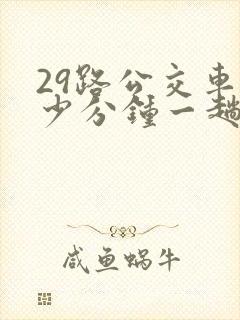 29路公交车
少分钟一趟
咸鱼蜗牛